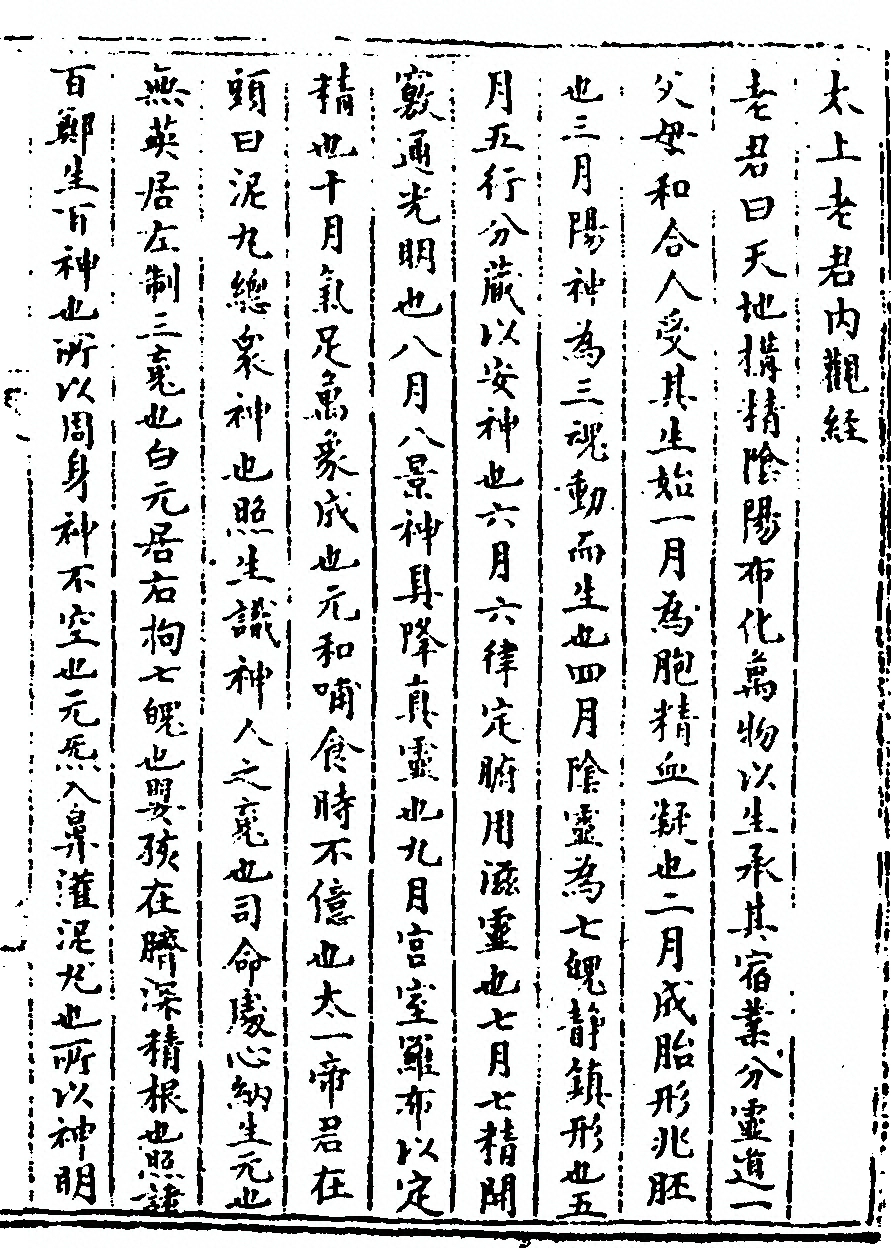 太上老君内觀経
老君曰天地構精陰陽布化萬物以生承其宿業分靈道一
父母和合人受其生始一月為胞精血凝也二月成胎形兆胚
也三月陽神為三魂動而生也四月陰靈為七魄靜鎮形也五
月五行分藏以安神也六月六律定腑用滋靈也七月七精開
竅通光明也八月八景神具降真靈也九月宫室羅布以定
精也十月氣足萬象成也元和哺食時不億也太一帝君在
頭曰泥丸總衆神也照生識神人之䰟也司命處心納生元也
無英居左制三䰟也白元居右拘七魄也嬰孩在臍深精根也照諸
百鄭生百神也所以周身神不空也元炁入鼻灌泥丸也所以神明